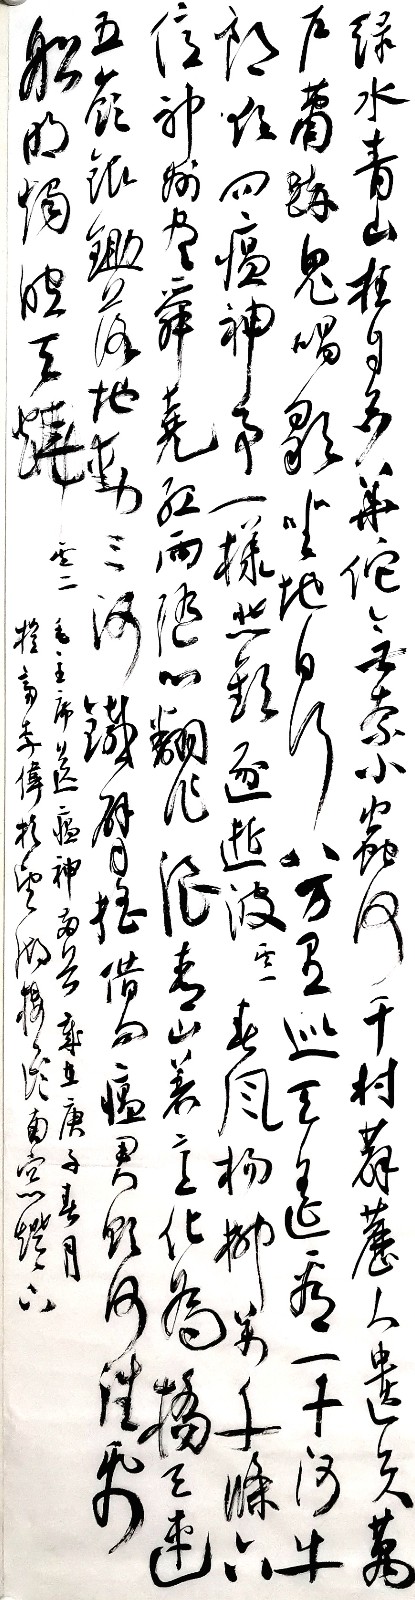 緑水青山枉自多華佗無奈小蟲何千村薜荔人遺矢萬
户蕭疏鬼唱歌坐地日行八万里巡天遥看一千河牛
郎欲問瘟神事一樣悲歡逐逝波其一春風楊柳萬千條六
億神州盡舜堯紅雨隨心翻作浪青山著意化為橋天連
五嶺銀鋤落地動三河鐵臂摇借問瘟君欲何往紙
船明燭照天燒其二
毛主席送瘟神两首歲在庚子春月
齋李偉於望湖樓南窗燈下